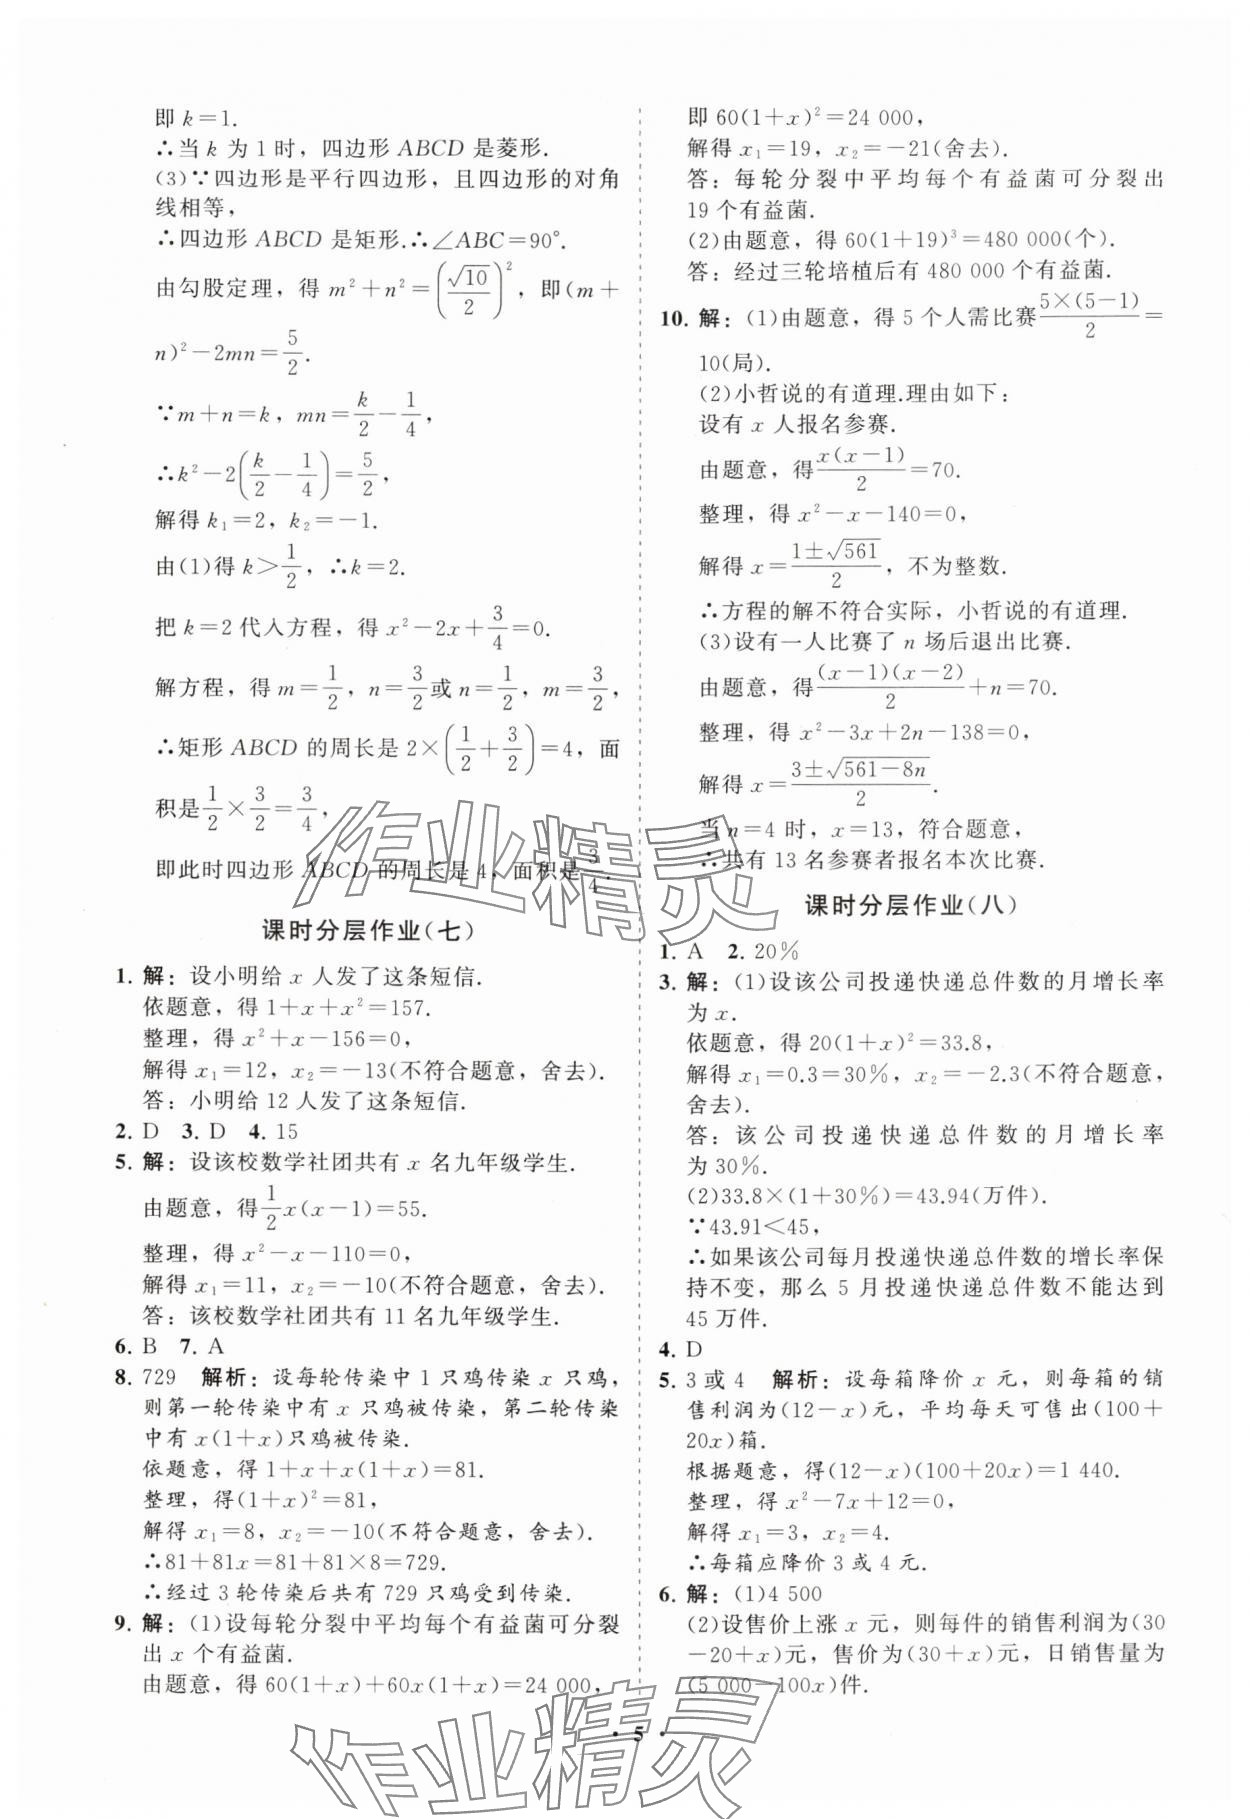 即 k=1.
∴当 k 为 1 时，四边形 ABCD 是菱形.
(3)∵四边形是平行四边形，且四边形的对角
线相等，
∴四边形 ABCD 是矩形.∴∠ABC=90°.
由勾股定理，得 m²+n²=(√10/2)²，即(m+
n)²-2mn=5/2.
∵m+n=k，mn=k/2-1/4，
∴k²-2(k/2-1/4)=5/2，
解得 k₁=2，k₂=-1.
由(1)得 k>1/2，∴k=2.
把 k=2 代入方程，得 x²-2x+3/4=0.
解方程，得 m=1/2，n=3/2或 n=1/2，m=3/2，
∴矩形 ABCD 的周长是 2×(1/2+3/2)=4，面
积是1/2×3/2=3/4，
即此时四边形 ABCD 的周长是 4，面积是3/4.
课时分层作业(七)
1. 解：设小明给 x 人发了这条短信.
依题意，得 1+x+x²=157.
整理，得 x²+x-156=0，
解得 x₁=12，x₂=-13(不符合题意，舍去).
答：小明给 12 人发了这条短信.
2. D 3. D 4. 15
5. 解：设该校数学社团共有 x 名九年级学生.
由题意，得1/2x(x-1)=55.
整理，得 x²-x-110=0，
解得 x₁=11，x₂=-10(不符合题意，舍去).
答：该校数学社团共有 11 名九年级学生.
6. B 7. A
8. 729 解析：设每轮传染中 1 只鸡传染 x 只鸡，
则第一轮传染中有 x 只鸡被传染，第二轮传染
中有 x(1+x)只鸡被传染.
依题意，得 1+x+x(1+x)=81.
整理，得(1+x)²=81，
解得 x₁=8，x₂=-10(不符合题意，舍去).
∴81+81x=81+81×8=729.
∴经过 3 轮传染后共有 729 只鸡受到传染.
9. 解：(1)设每轮分裂中平均每个有益菌可分裂
出 x 个有益菌.
由题意，得 60(1+x)+60x(1+x)=24 000，
即 60(1+x)²=24 000，
解得 x₁=19，x₂=-21(舍去).
答：每轮分裂中平均每个有益菌可分裂出
19 个有益菌.
(2)由题意，得 60(1+19)³=480 000(个).
答：经过三轮培植后有 480 000 个有益菌.
10. 解：(1)由题意，得 5 个人需比赛5×(5-1)/2=
10(局).
(2)小哲说的有道理.理由如下：
设有 x 人报名参赛.
由题意，得x(x-1)/2=70.
整理，得 x²-x-140=0，
解得 x=(1±√561)/2，不为整数.
∴方程的解不符合实际，小哲说的有道理.
(3)设有一人比赛了 n 场后退出比赛.
由题意，得(x-1)(x-2)/2+n=70.
整理，得 x²-3x+2n-138=0，
解得 x=(3±√561-8n)/2.
当 n=4 时，x=13，符合题意，
∴共有 13 名参赛者报名本次比赛.
课时分层作业(八)
1. A 2. 20%
3. 解：(1)设该公司投递快递总件数的月增长率
为 x.
依题意，得 20(1+x)²=33.8，
解得 x₁=0.3=30%，x₂=-2.3(不符合题意，
舍去).
答：该公司投递快递总件数的月增长率
为 30%.
(2)33.8×(1+30%)=43.94(万件).
∵43.91<45，
∴如果该公司每月投递快递总件数的增长率保
持不变，那么 5 月投递快递总件数不能达到
45 万件.
4. D
5. 3 或 4 解析：设每箱降价 x 元，则每箱的销
售利润为(12-x)元，平均每天可售出(100+
20x)箱.
根据题意，得(12-x)(100+20x)=1 440.
整理，得 x²-7x+12=0，
解得 x₁=3，x₂=4.
∴每箱应降价 3 或 4 元.
6. 解：(1)4 500
(2)设售价上涨 x 元，则每件的销售利润为(30
-20+x)元，售价为(30+x)元，日销售量为
(5 000-100x)件.
· 5 ·
作业精灵
作业精灵